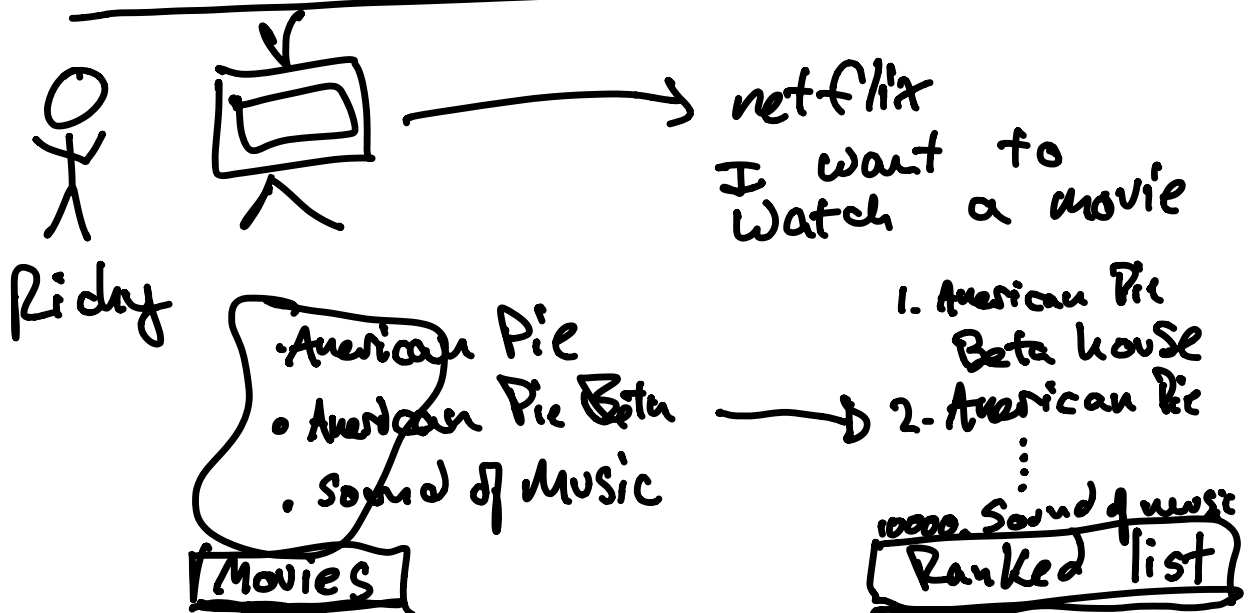 netflix
I want to
watch a movie
Ricky
• American Pie
• American Pie Beta
• Sound of Music
Movies
1. American Pie
Beta house
2. American Pie
10000. Sound of music
Ranked list